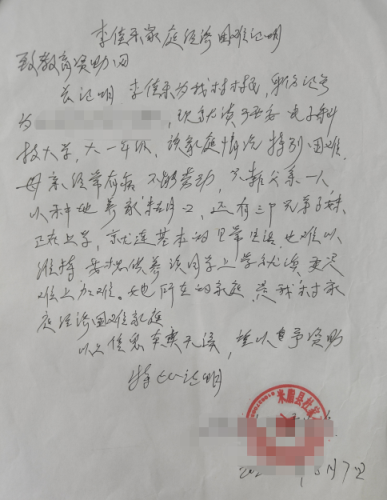 李佳乐家庭经济困难证明
致教育资助司
兹证明 李佳乐为我村村民,身份证号
为 现就读于西安电子科
技大学,大一年级,该家庭情况特别困难,
母亲经常有病 不能劳动,只靠父亲一人
以种地养家 ,还有三个兄弟子妹
正在上学,就连基本的日常生活,也难以
维持,要想供养该同学上学就读 更是
难上加难。她所在的家庭 是我村家
庭经济困难家庭
以上信息真实无误,望以 予资助
特此证明
米脂县
月7日